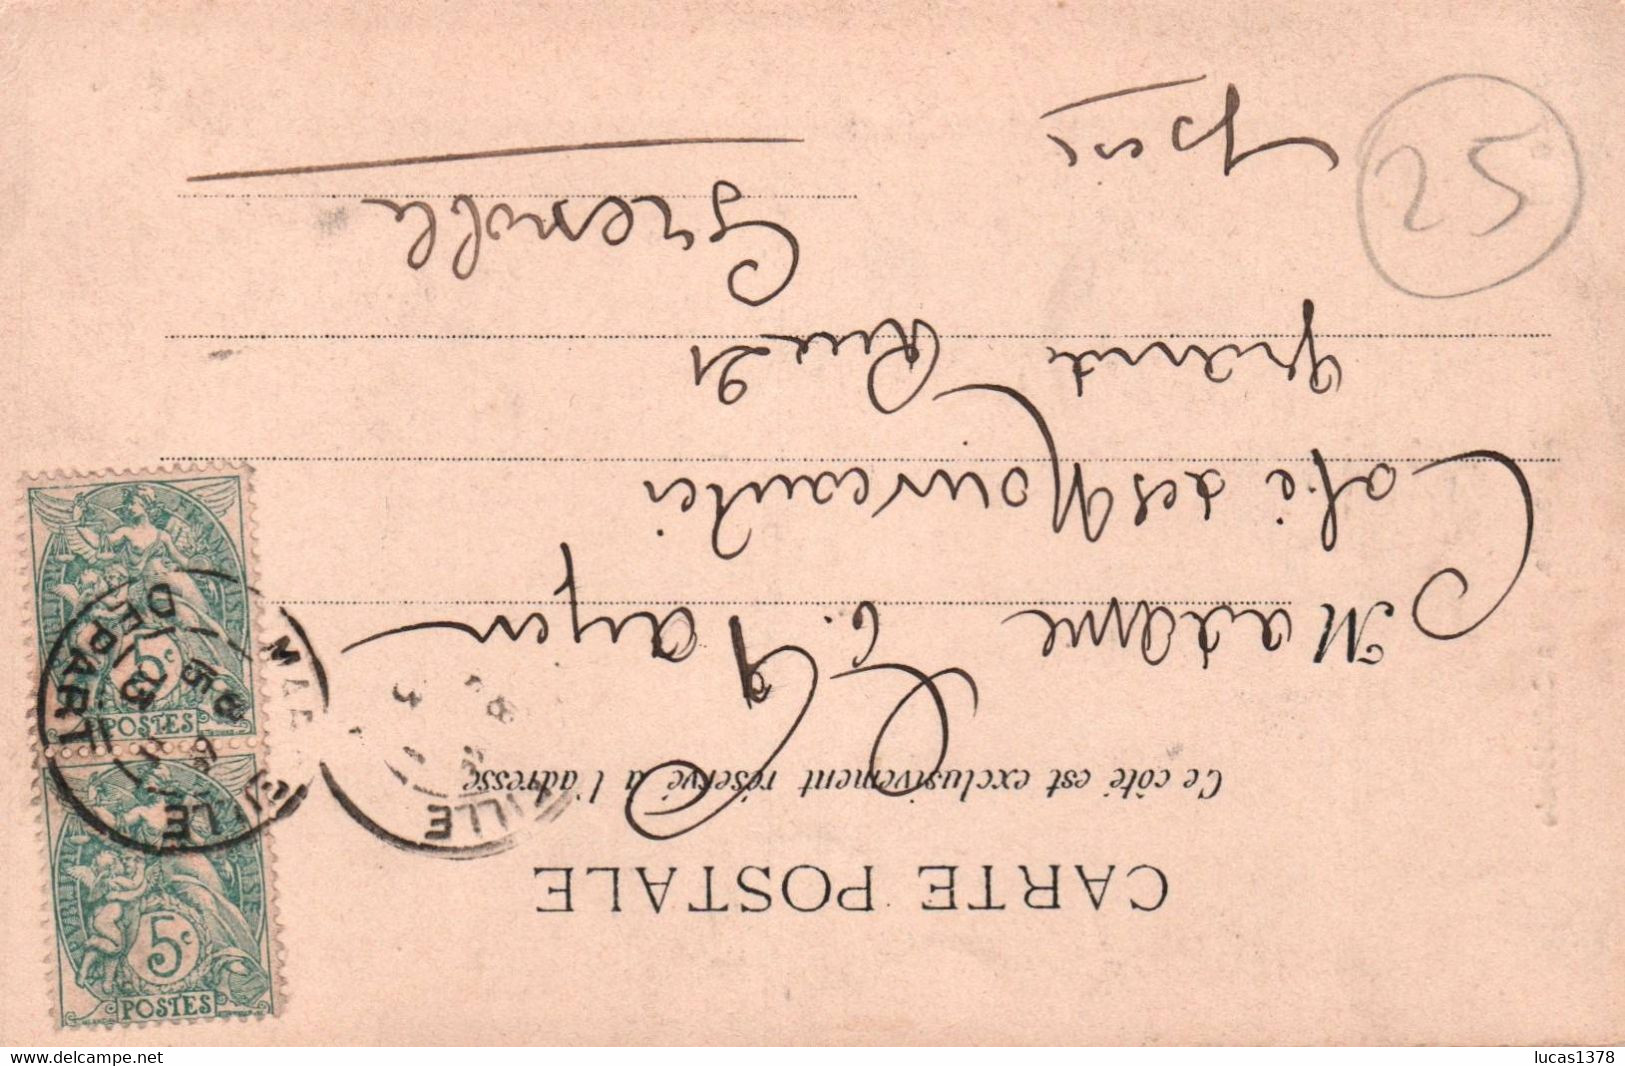 CARTE POSTALE
Ce côté est exclusivement réservé à l'adresse
Madame C.
Café des Nouveautés
Grande Rue 21
Grenoble
Isère
25
5c
POSTES
5c
POSTES
DEPART
ILLE
delcampe.net
lucas1378